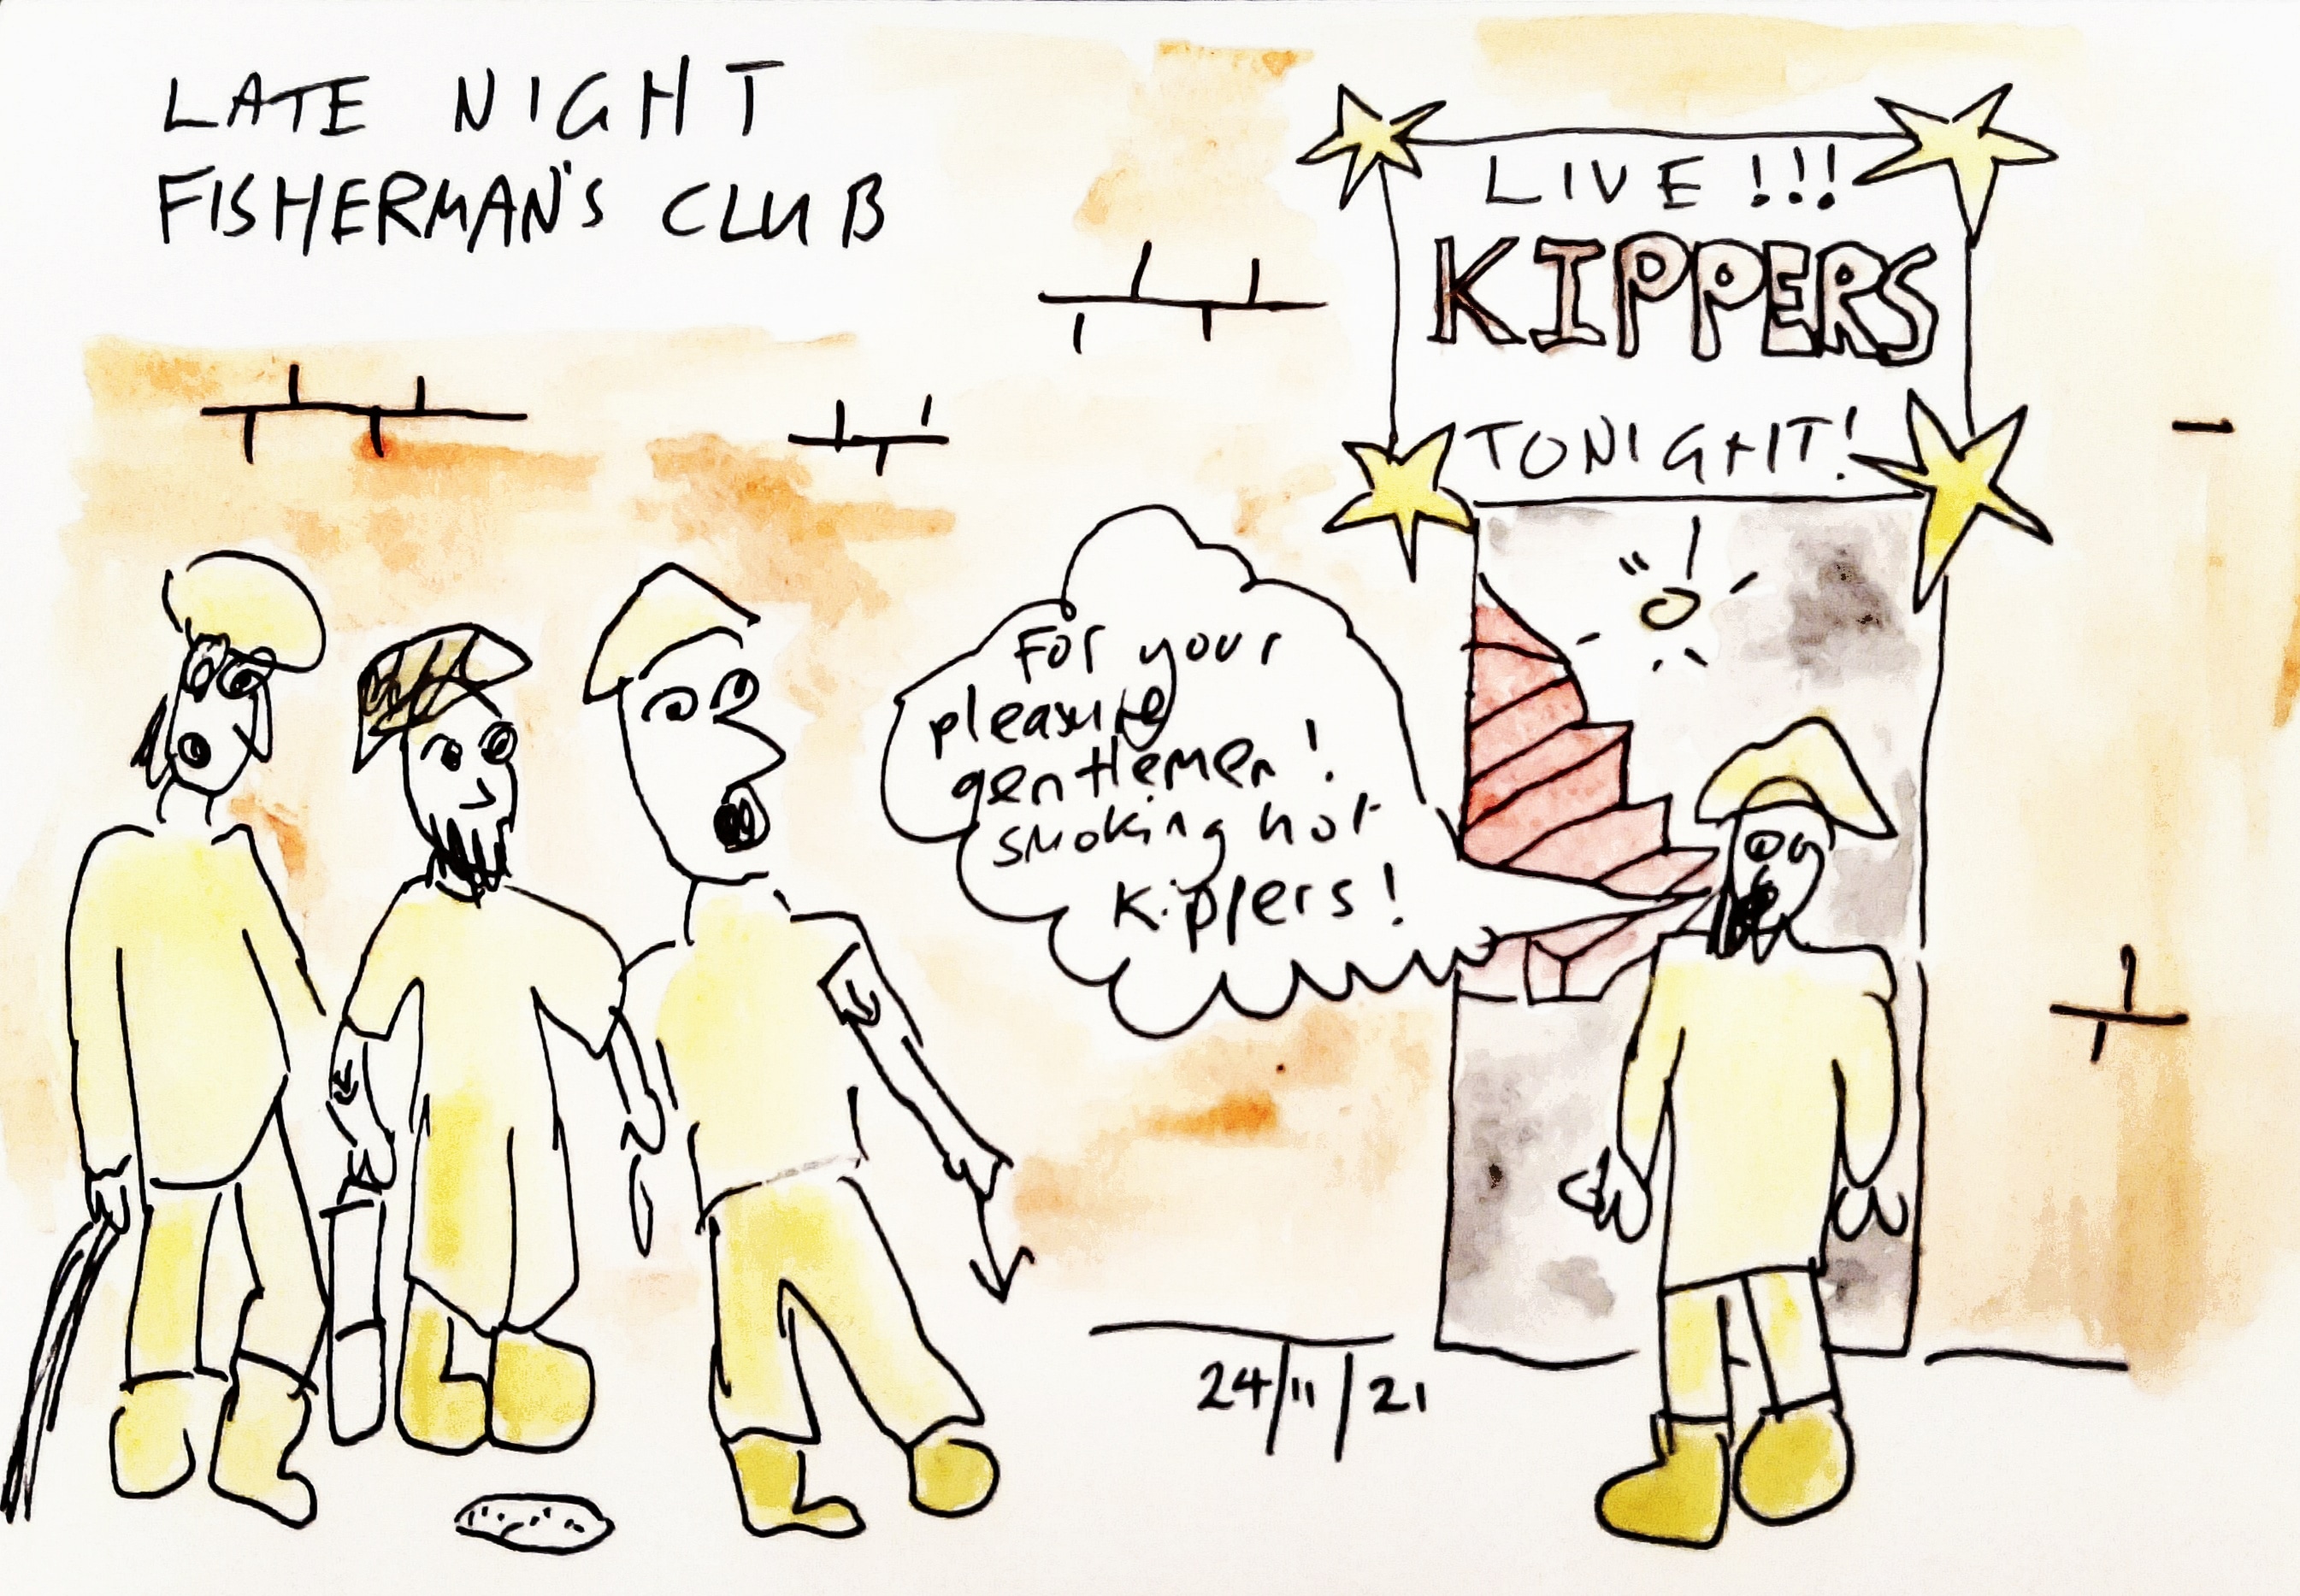 LATE NIGHT
FISHERMAN'S CLUB
LIVE!!!
KIPPERS
TONIGHT!
For your
pleasure
gentlemen!
smoking hot
kippers!
24/11/21